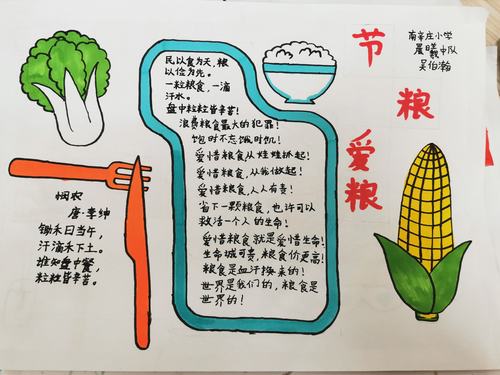 节粮爱粮
南辛庄小学
晨曦中队
吴伯瀚
民以食为天,粮
以俭为先。
一粒粮食,一滴
汗水。
盘中粒粒皆辛苦!
浪费粮食最大的犯罪!
饱时不忘饿时饥!
爱惜粮食从娃娃抓起!
爱惜粮食,从我做起!
爱惜粮食,人人有责!
省下一颗粮食,也许可以
救活一个人的生命!
爱惜粮食就是爱惜生命!
生命诚可贵,粮食价更高!
粮食是血汗换来的!
世界是我们的,粮食是
世界的!
悯农
唐·李绅
锄禾日当午,
汗滴禾下土。
谁知盘中餐,
粒粒皆辛苦。